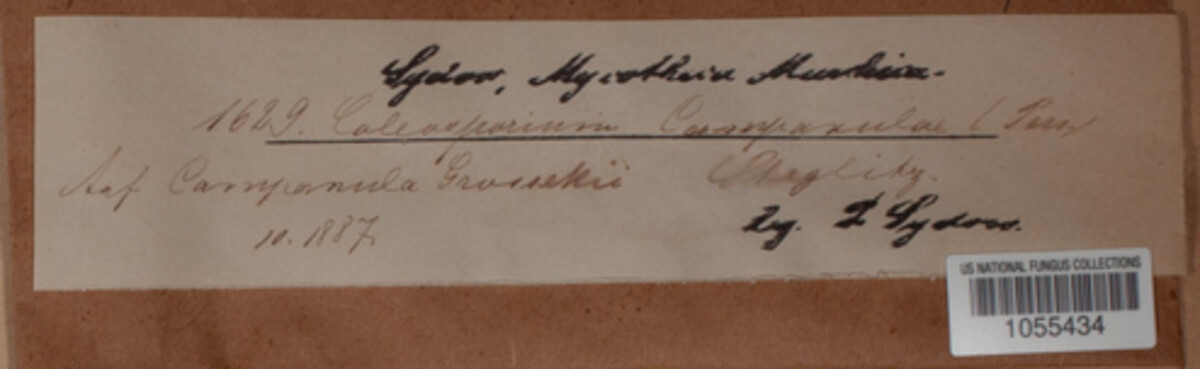 Sydow, Mycotheca Marchica.
1629. Coleosporium Campanulae (Pers)
Auf Campanula Grossekii Steglitz.
10. 1887.
leg. P Sydow.
US NATIONAL FUNGUS COLLECTIONS
1055434